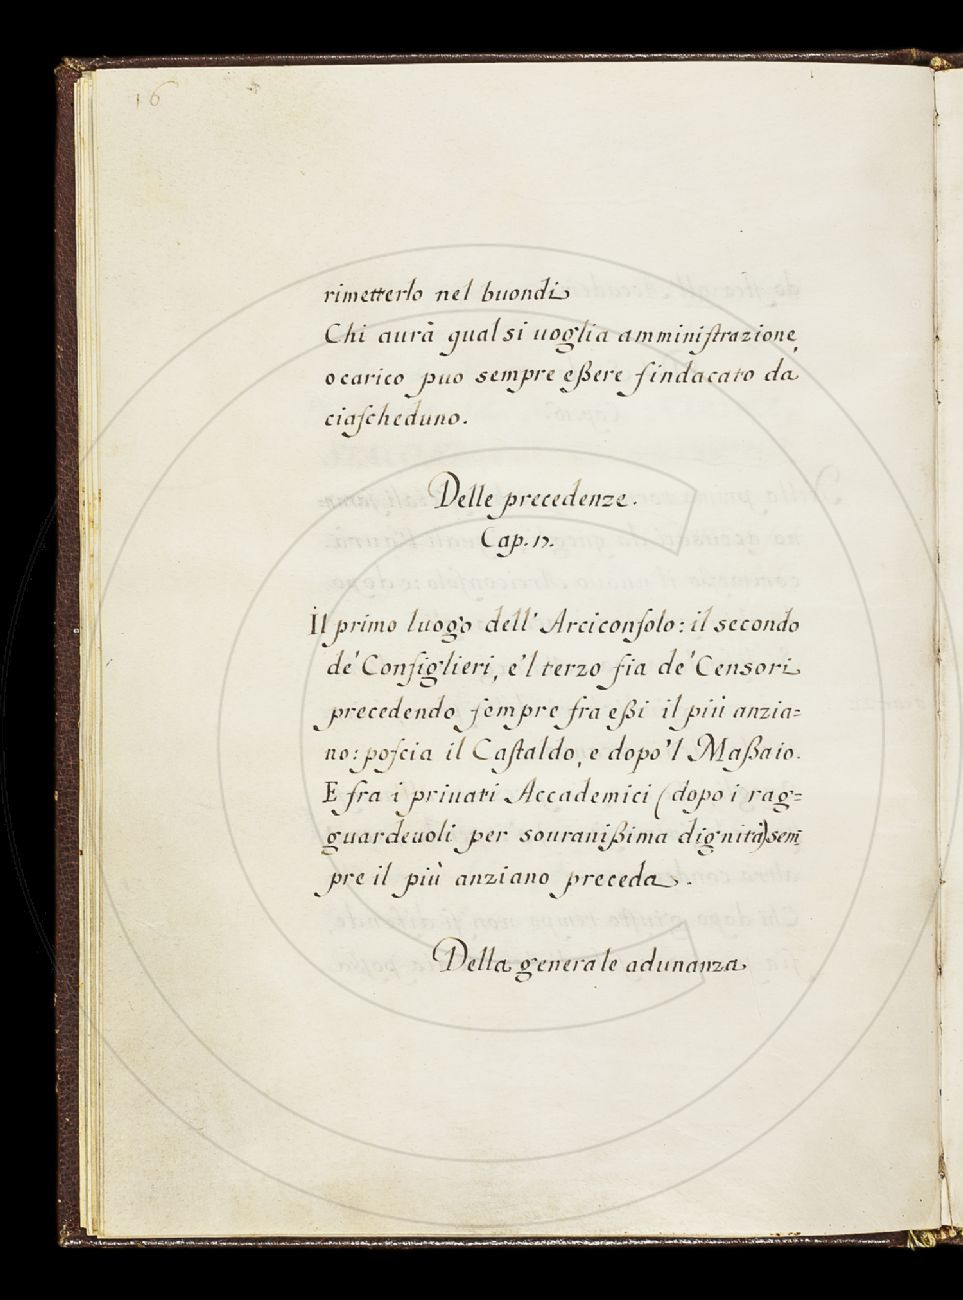 16
rimetterlo nel buondi
Chi aurà qual si uoglia amminiſtrazione,
o carico puo sempre eßere ſindacato da
ciaſcheduno.
Delle precedenze.
Cap. 17.
Il primo luogo dell' Arciconſolo: il secondo
de' Conſiglieri, e'l terzo ſia de' Censori
precedendo ſempre fra eßi il più anzia=
no: poſcia il Caſtaldo, e dopo'l Maßaio.
E fra i priuati Accademici (dopo i rag=
guardeuoli per souranißima dignità) sem
pre il più anziano preceda.
Della generale adunanza